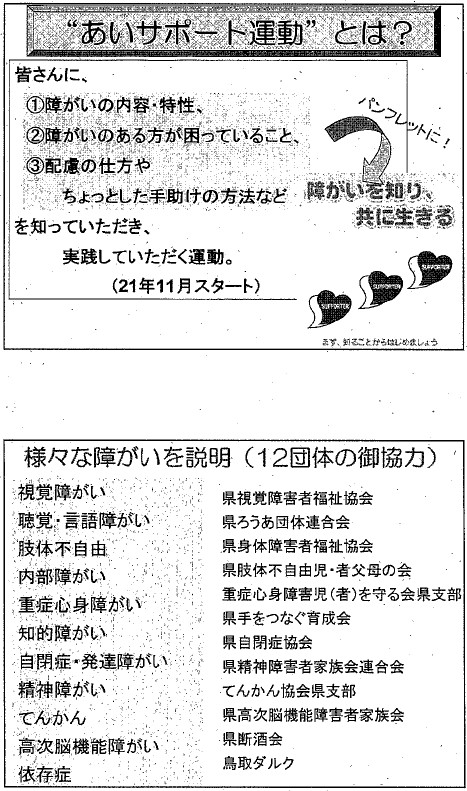 “あいサポート運動”とは？
皆さんに、
①障がいの内容・特性、
②障がいのある方が困っていること、
③配慮の仕方や
ちょっとした手助けの方法など
を知っていただき、
実践していただく運動。
（21年11月スタート）
パンフレットに！
障がいを知り、
共に生きる
SUPPORTER
SUPPORTER
SUPPORTER
まず、知ることからはじめましょう
様々な障がいを説明（１２団体の御協力）
視覚障がい
聴覚・言語障がい
肢体不自由
内部障がい
重症心身障がい
知的障がい
自閉症・発達障がい
精神障がい
てんかん
高次脳機能障がい
依存症
県視覚障害者福祉協会
県ろうあ団体連合会
県身体障害者福祉協会
県肢体不自由児・者父母の会
重症心身障害児（者）を守る会県支部
県手をつなぐ育成会
県自閉症協会
県精神障害者家族会連合会
てんかん協会県支部
県高次脳機能障害者家族会
県断酒会
鳥取ダルク